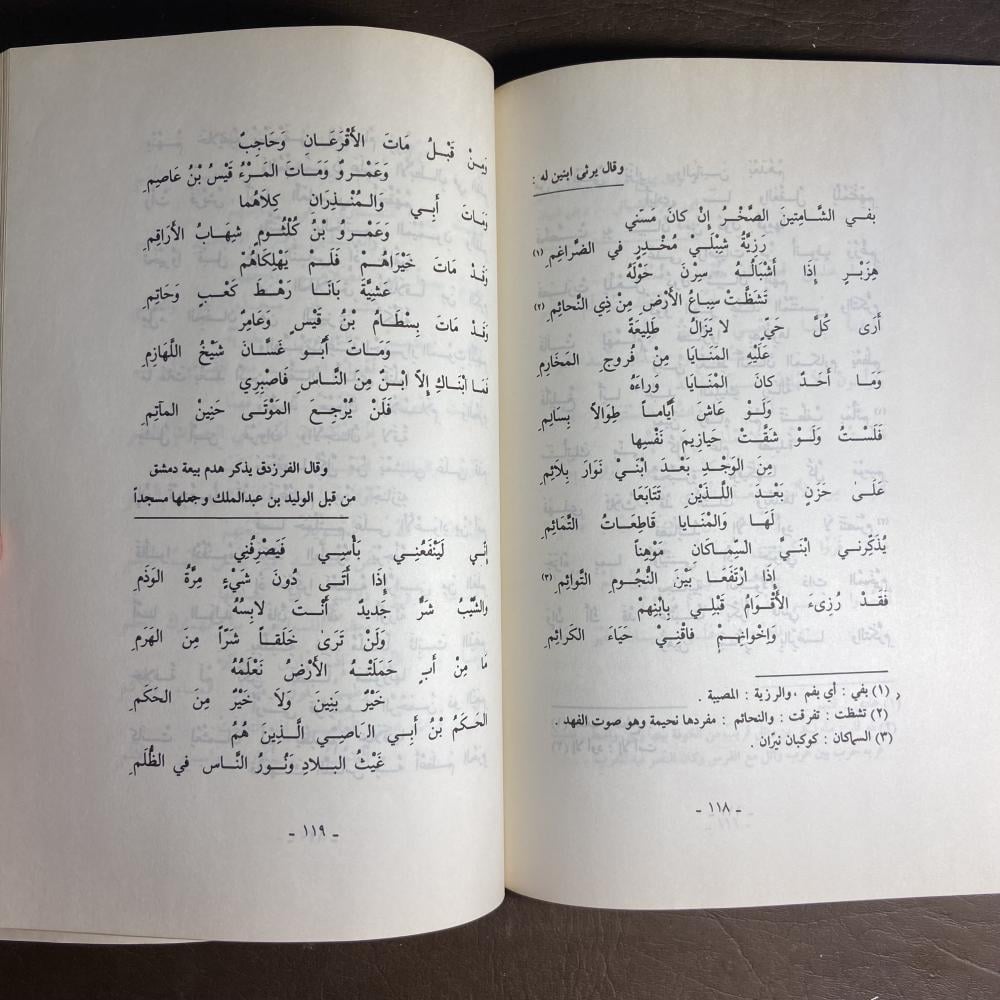 وقال يرثى ابنين له :
بفي الشَّامتينَ الصَّخْرُ إنْ كانَ مَسَنِي
رَزِيَّةُ شِبْلَيْ مُخْدِرٍ في الضَّراغِمِ (١)
هِزَبْرٍ إذَا أشْبَالُهُ سِرْنَ حَوْلَهُ
تَشَظَّتْ سِباعُ الأرْضِ مِنْ ذِي النَّحائِمِ (٢)
أرَى كُلَّ حَيٍّ لا يَزَالُ طَلِيعَةً
عَلَيْهِ المَنَايَا مِنْ فُروجِ المَخَارِمِ
وَمَا أحَدٌ كانَ المَنَايَا وَراءَهُ
وَلَوْ عَاشَ أيَّاماً طِوَالاً بِسَالِمِ
فَلَسْتُ وَلَوْ شَقَّتْ حَيَازِيمَ نَفْسِها
مِنَ الوَجْدِ بَعْدَ ابْنَيْ نَوَارَ بِلَائِمِ
عَلَى حَزَنٍ بَعْدَ اللَّذَيْنِ تَتَابَعَا
لَهَا وَالْمَنَايا قَاطِعَاتُ التَّمَائِمِ
يُذَكِّرني ابْنَيَّ السِّمَاكَانِ مَوْهِناً
إذَا ارْتَفَعَا بَيْنَ النُّجُومِ التَّوائِمِ (٣)
فَقَدْ رُزِىءَ الأقْوَامُ قَبْلِي بِابْنِهِمْ
وَإخْوَانِهِمْ فاقْنِيْ حَيَاءَ الكَرائِمِ
(١) بفي : أي بفم ، والرزية : المصيبة .
(٢) تشظت : تفرقت : والنحائم : مفردها نحيمة وهو صوت الفهد .
(٣) السماكان : كوكبان نيّران .
- ١١٨ -
وَمِنْ قَبْلُ مَاتَ الأقْرَعَانِ وَحَاجِبٌ
وَعَمْروٌ وَمَاتَ المَرْءُ قَيْسُ بْنُ عَاصِمِ
وَمَاتَ أبي وَالمُنْذِرَانِ كِلَاهُما
وَعَمْرُو بْنُ كُلْثُومٍ شِهَابُ الأرَاقِمِ
وَقَدْ مَاتَ خَيْرَاهُمْ فَلَمْ يَهْلِكَاهُمْ
عَشِيَّةَ بَانَا رَهْطَ كَعْبٍ وَحَاتِمِ
وَقَدْ مَاتَ بِسْطَامُ بْنُ قَيْسٍ وَعَامِرٌ
وَمَاتَ أبُو غَسَّانَ شَيْخُ اللَّهَازِمِ
فَمَا ابْنَاكِ إلاّ ابْنٌ مِنَ النَّاسِ فَاصْبِرِي
فَلَنْ يُرْجِعَ المَوْتَى حَنِينُ المآتِمِ
وقال الفرزدق يذكر هدم بيعة دمشق
من قبل الوليد بن عبدالملك وجعلها مسجداً
إنّي لَيَنْفَعُنِي بَأْسِي فَيَصْرِفُنِي
إذَا أتَى دُونَ شَيْءٍ مِرَّةُ الوَذَمِ
والشَّيْبُ شَرُّ جَدِيدٍ أنْتَ لابِسُهُ
وَلَنْ تَرَىٰ خَلَقاً شَرّاً مِنَ الهَرَمِ
مَا مِنْ أبٍ حَمَلَتْهُ الأرْضُ نَعْلَمُهُ
خَيْرٌ بَنِينَ وَلاَ خَيْرٌ مِنَ الحَكَمِ
الحَكَمُ بْنُ أبِي العَاصِي الَّذِينَ هُمُ
غَيْثُ البِلادِ وَنُورُ النَّاسِ في الظُّلَمِ
- ١١٩ -